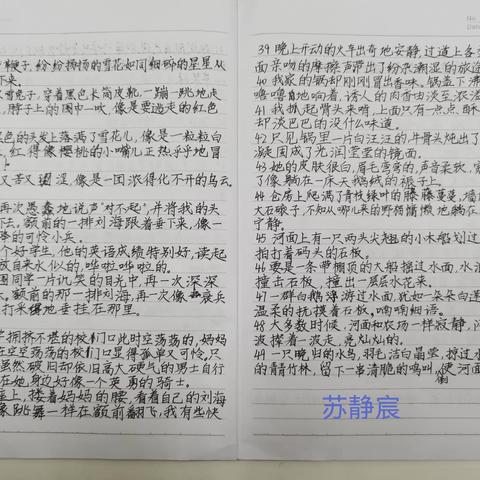 鞭子,纷纷扬扬的雪花如同细碎的星星从
下来。
雪兔子,穿着黑色长筒皮靴,一蹦一跳地走
脖子上的围巾一吹,像是要逃走的红色
色的头发上落满了雪花儿,像是一粒粒白
红得像樱桃的小嘴儿正热乎乎地冒
又苦又涩,像是一团浓得化不开的乌云
再次愚蠢地说声“对不起”,并将我的头
下去。额前的一排刘海跟着垂下来,像一
的可怜小兵
个好学生,他的英语成绩特别好,读起
放自来水似的,哗啦哗啦的。
同学一片讥笑的目光中,再一次深深
额前的那一排刘海,再一次像哀兵
打采地垂挂在那里。
拥挤不堪的校门口此时空荡荡的,妈妈
在空空荡荡的校门口显得孤单又可怜,只
虽然破旧却依旧高大硬气的男士自行
在她身边好像一个英勇的骑士。
上,搂着妈妈的腰,看着自己的刘海
像跳舞一样在额前翻飞,我有些快
39 晚上开动的火车出奇地安静,过道上各
面亲吻的摩擦声带出了纷杂潮湿的旅途
40 我家的锅却刚刚冒出香味,锅盖下沸
噜噜地响着,诱人的肉香却淡至浓
41 我扒起骨头来啃,上面只有一点点
却淡巴巴的没什么味道。
42 只见锅里一片白汪汪的牛骨头炖出了
凝固成了光润莹莹的镜面。
43 她的皮肤很白,眉毛弯弯的,声音柔软,
了像躺在一床天鹅绒的褥子上。
44 仓房上爬满了青枝绿叶的藤藤蔓蔓,墙
大石磙子,不知从哪儿来的野猫慵懒地躺在
宁静。
45 河面上有一只两头尖翘的小木船划过
拍打着码头的石板。
46 要是一条带棚顶的大船掠过水面,水浪
撞击石板,撞出一层层水花来。
47 一群白鹅浮游过水面,犹如一朵朵白莲
温柔的抚摸着石板。呦呦细语。
48 大多数时候,河面和农场一样寂静,
波撵着一波走,亮灿灿的。
49 一只晚归的水鸟,羽毛洁白晶莹,掠过水
的青青竹林,留下一串清脆的鸣叫,使河面
苏静宸